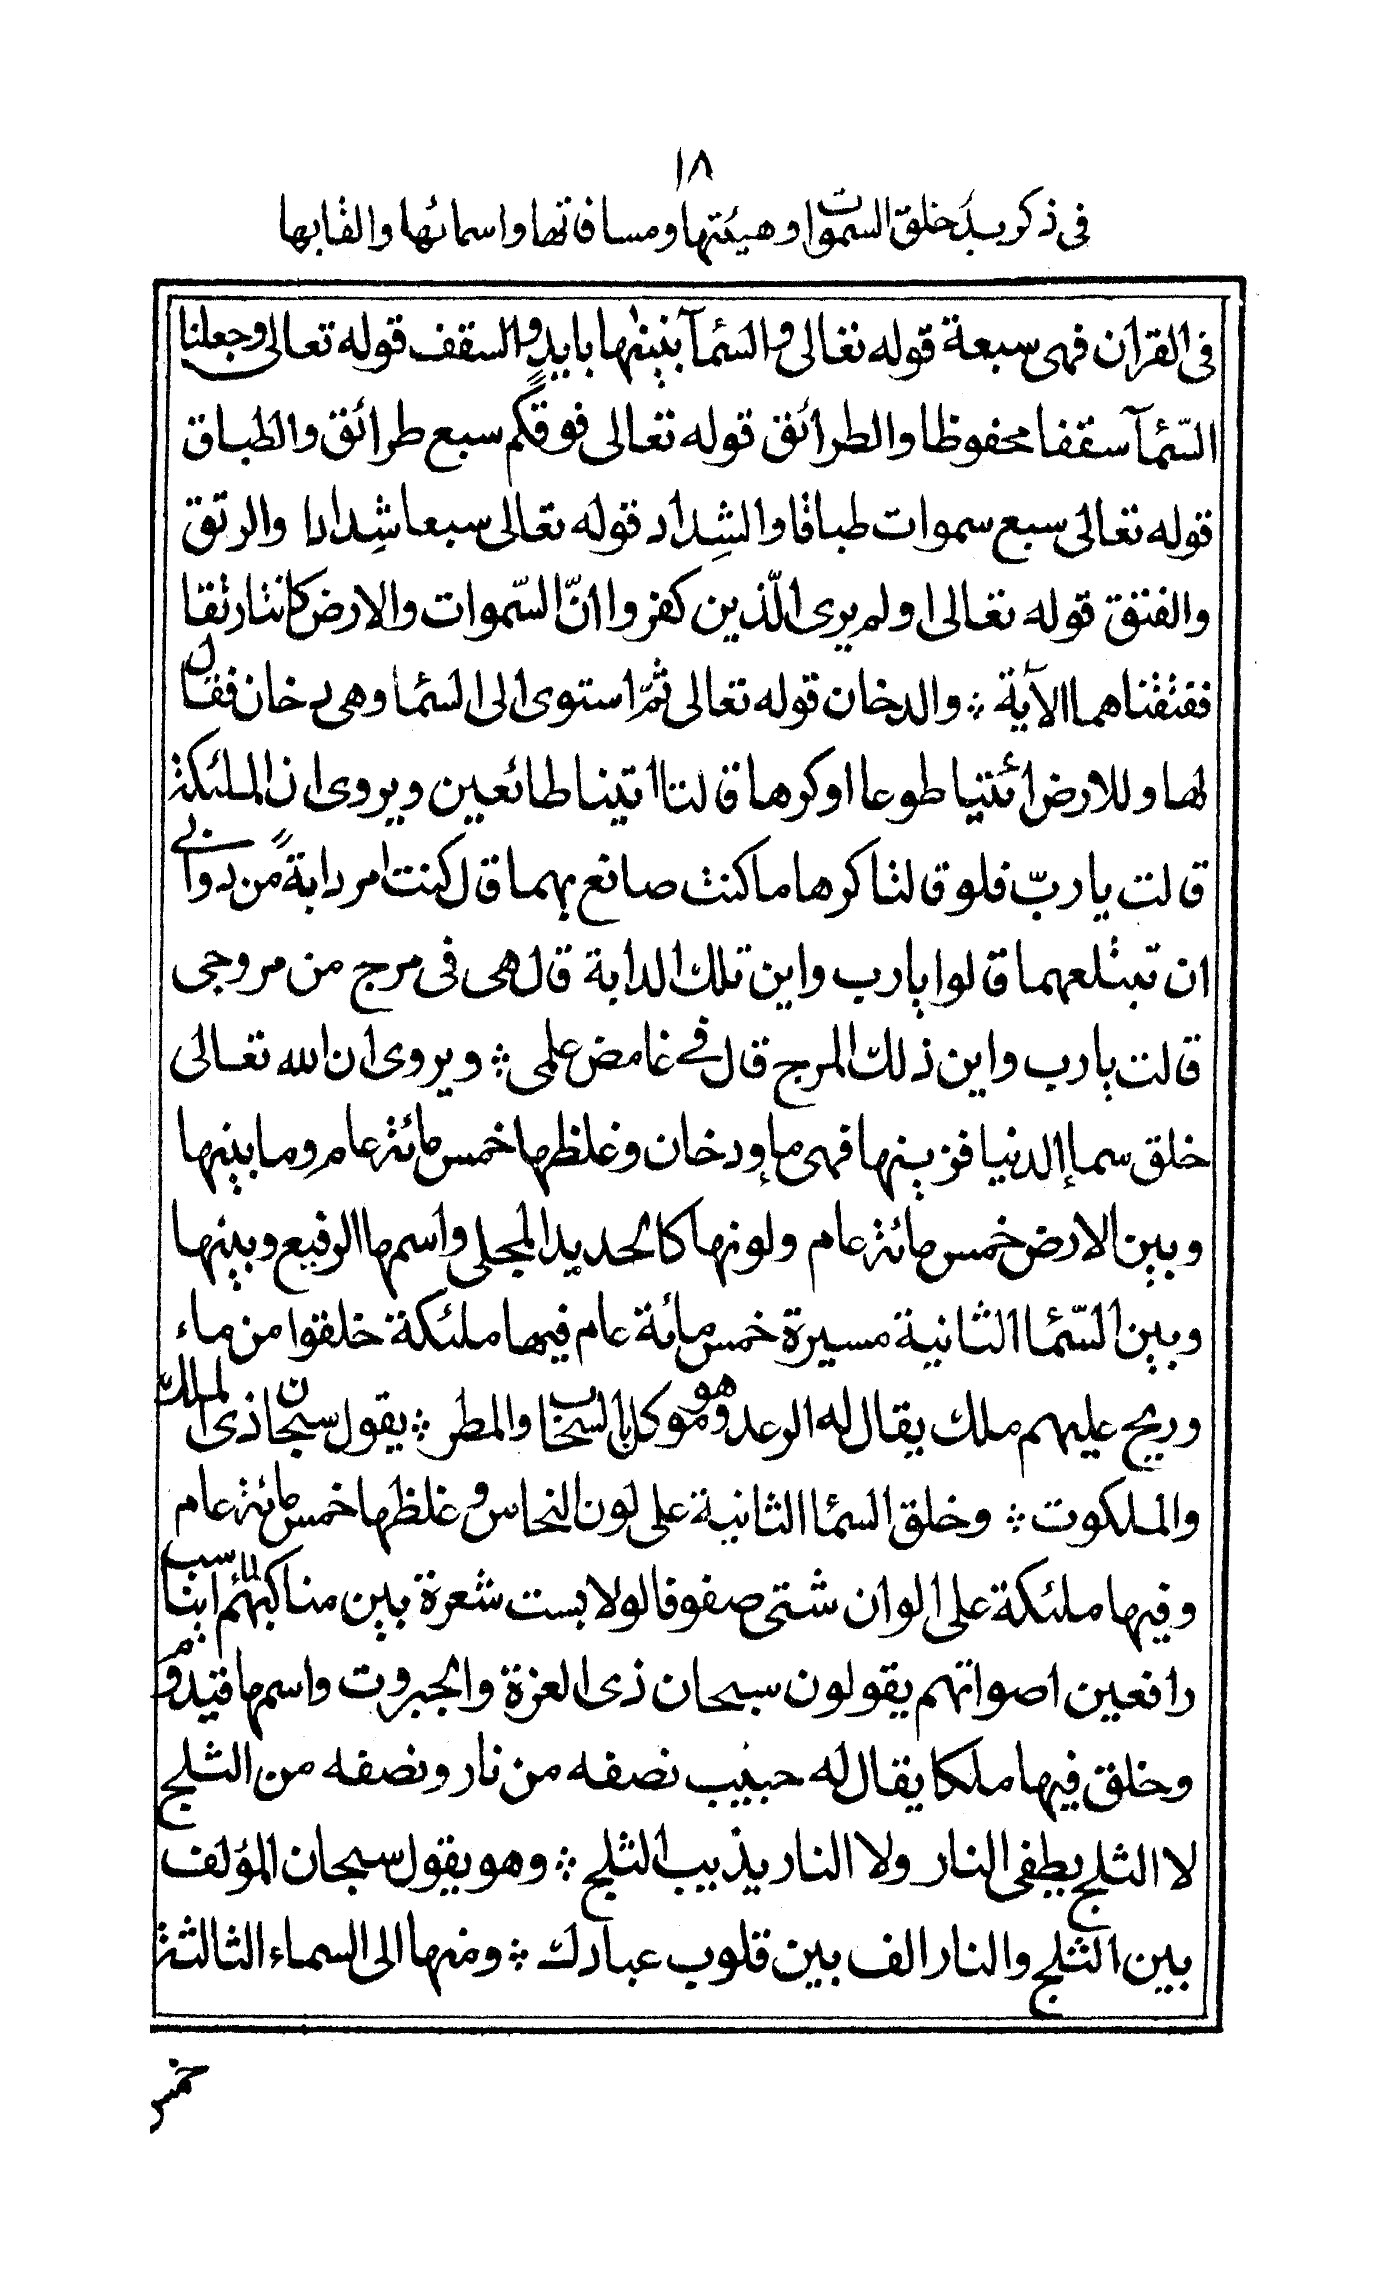 ١٨
في ذكر بدء خلق السموات وهيئتها ومسافاتها واسمائها والقابها
في القرآن فهي سبعة قوله تعالى والسمآء بنيناها بايد والسقف قوله تعالى وجعلنا
السّمآء سقفا محفوظا والطرائق قوله تعالى فوقكم سبع طرائق والطباق
قوله تعالى سبع سموات طباقا والشِداد قوله تعالى سبعا شِدادا والرتق
والفتق قوله تعالى اولم يرى الّذين كفروا انّ السّموات والارض كانتا رتقا
ففتقناهما الآية ؞ والدخان قوله تعالى ثمّ استوى الى السمآء وهي دخان فقال
لها وللارض ائتيا طوعا او كرها قالتا اتينا طائعين ويروى ان الملئكة
قالت يا ربّ فلو قالتا كرها ما كنت صانع بهما قال كنت امر دابة من دوابي
ان تبتلعهما قالوا يارب واين تلك الدابة قال هي في مرج من مروجي
قالت يارب واين ذلك المرج قال في غامض علمي ؞ ويروى ان الله تعالى
خلق سماء الدنيا فزينها فهي ماء ودخان وغلظها خمس مائة عام وما بينها
وبين الارض خمس مائة عام ولونها كالحديد المجلى واسمها الرفيع وبينها
وبين السّماء الثانية مسيرة خمس مائة عام فيها ملئكة خلقوا من ماء
وريح عليهم ملك يقال له الرعد وهو موكل بالسحاب والمطر ؞ يقول سبحان ذى الملك
والملكوت ؞ وخلق السماء الثانية على لون النحاس وغلظها خمس مائة عام
وفيها ملئكة على الوان شتى صفوفا لو لابست شعرة بين مناكبهم لما انسابت
رافعين اصواتهم يقولون سبحان ذى العزة والجبروت واسمها قيدوم
وخلق فيها ملكا يقال له حبيب نصفه من نار ونصفه من الثلج
لا الثلج يطفى النار ولا النار يذيب الثلج ؞ وهو يقول سبحان المؤلف
بين الثلج والنار الف بين قلوب عبادك ؞ ومنها الى السماء الثالثة
خمس